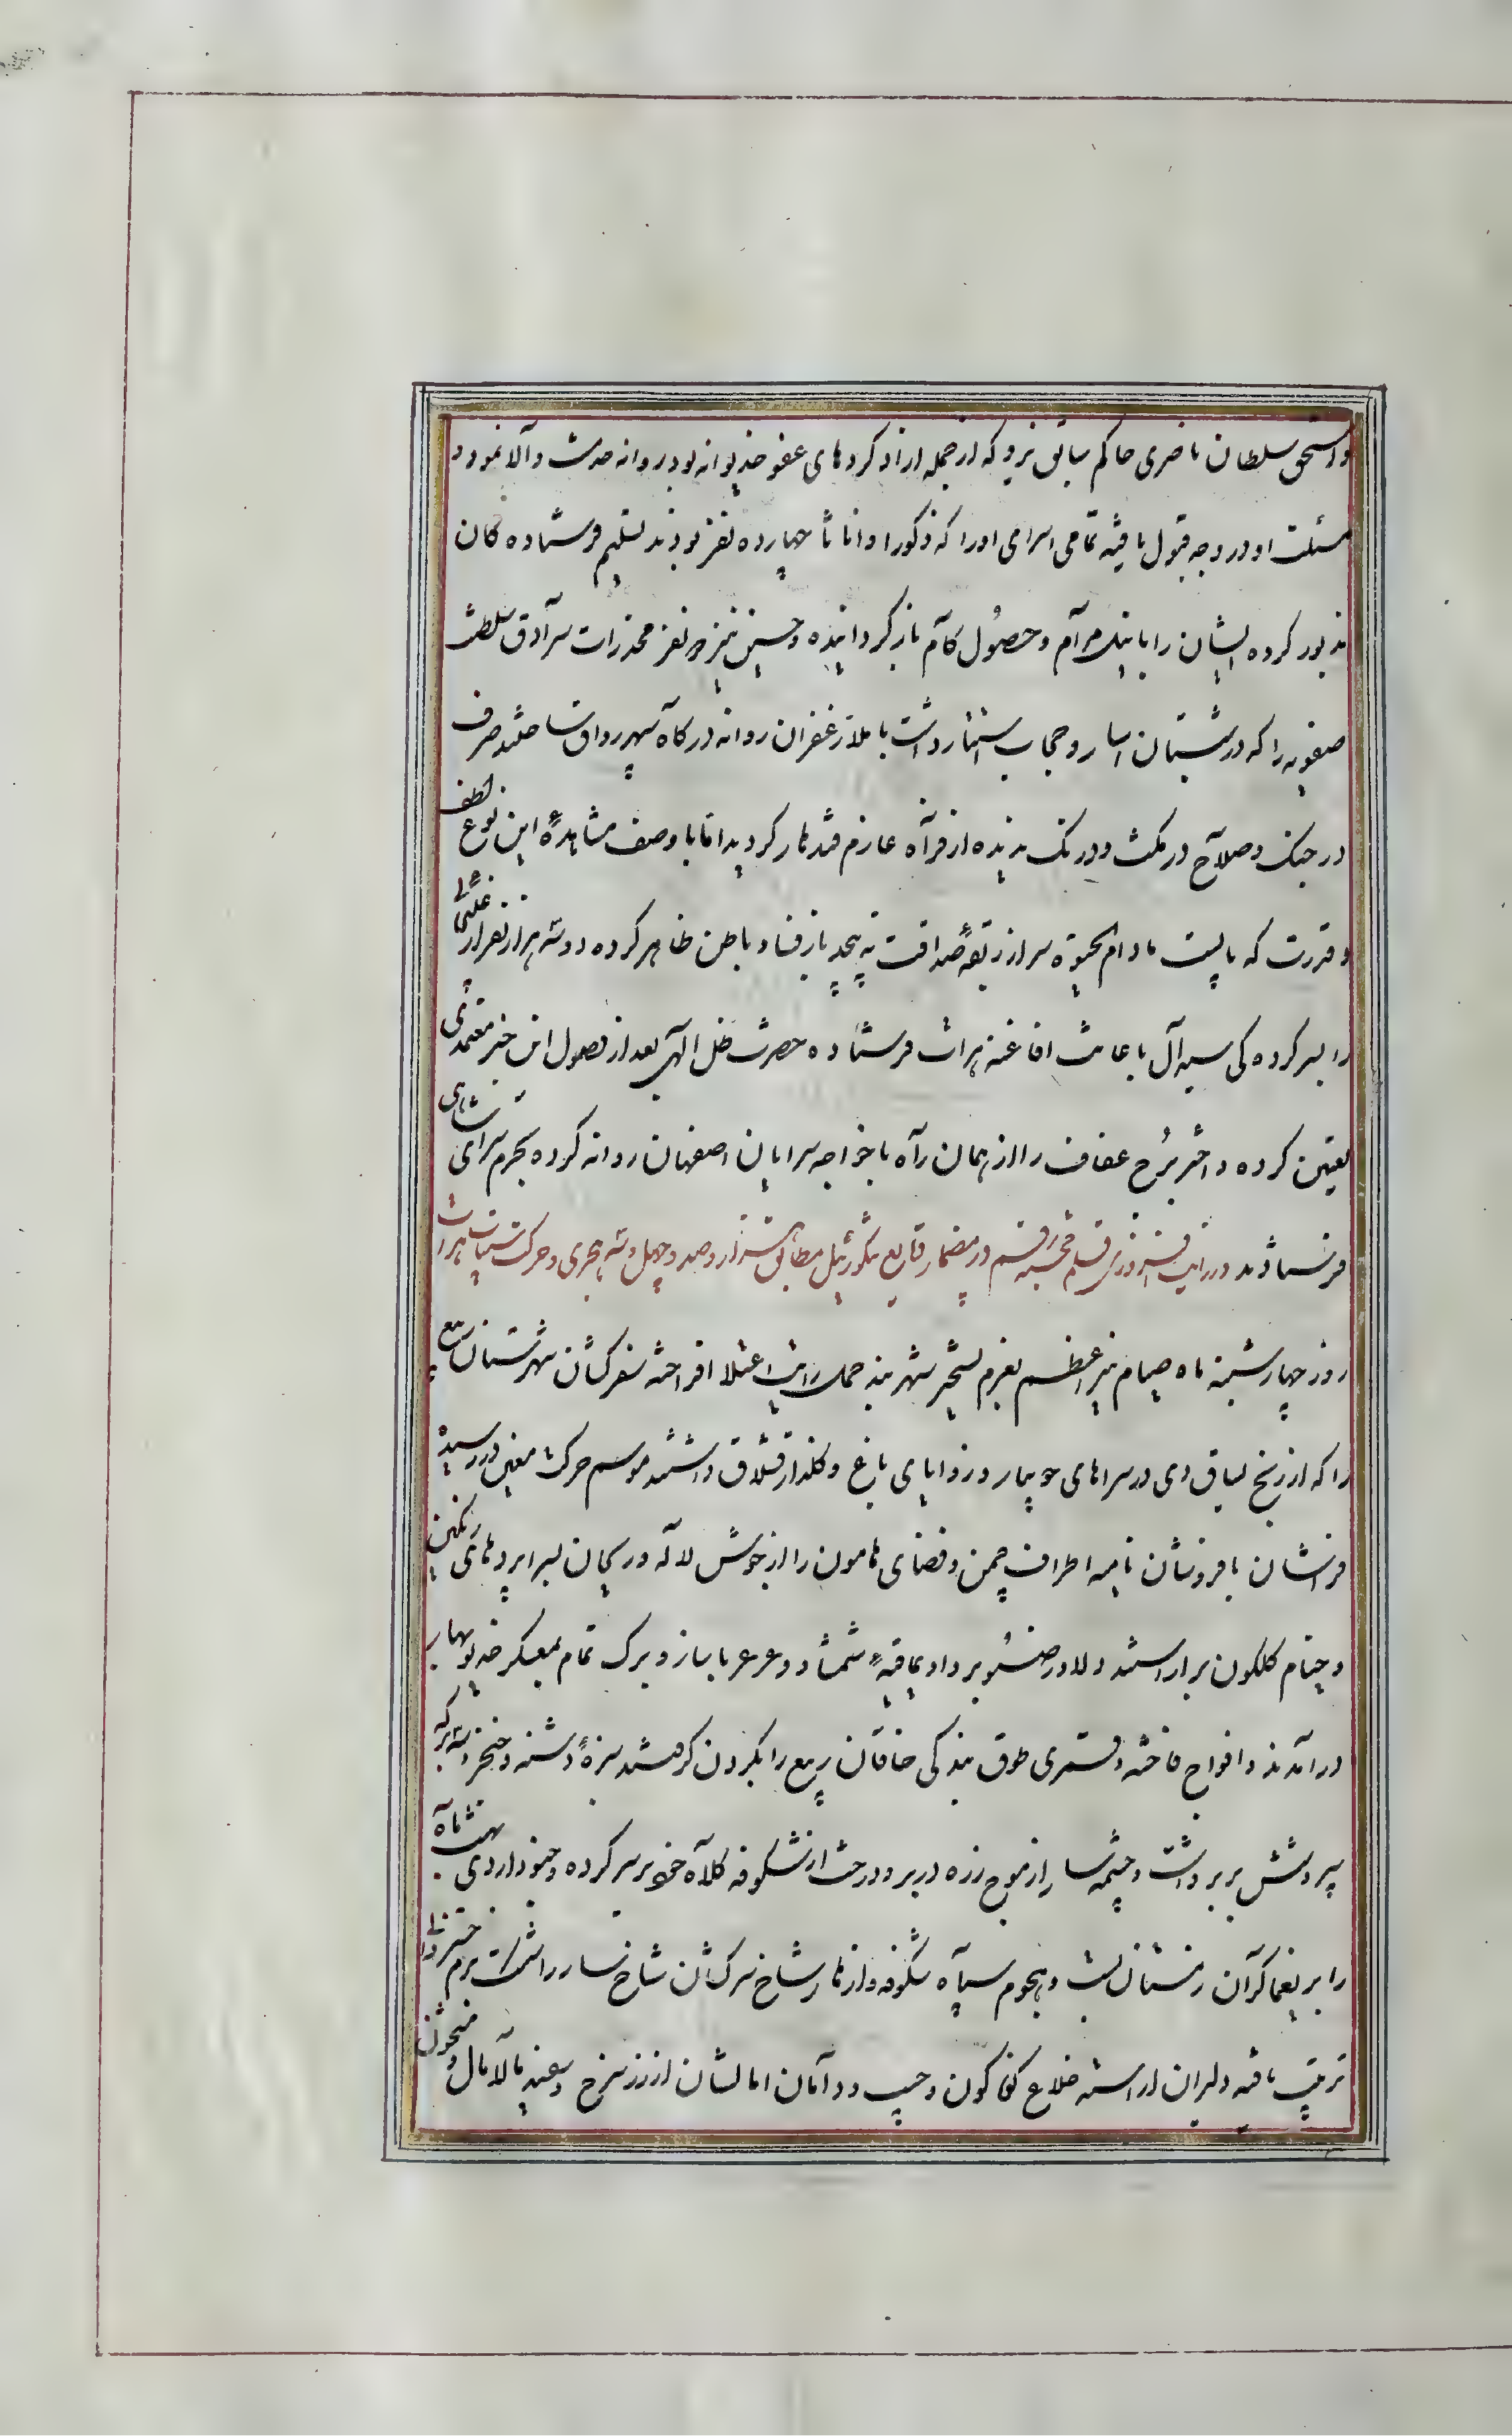 و اسحق سلطان ناصری حاکم سابق نیز و که از جمله ازاد کردهای عفو خدیوانه بود روانه خدمت والا نمود و
مسئلت او در وجه قبول یافته تمامی اسرامی او را که ذکورا و اناثا چهارده نفر بودند تسلیم فرستاده کان
مذبور کرده ایشان را با نیل مرآم و حصول کآم باز کردانیده و حسین نیز دو نفر مخدرات سرآدق سلطنت
صفویه را که در شبستان اسار و حجاب استتار داشت با ملا زعفران روانه درکآه سپهر رواق ساخته صرف
در جنک و صلآح در مکث و درنک ندیده از فرآه عازم قندهار کردید اما با وصف مشاهدهٔ این نوع لطف
و قدرت که بایست مادام الحیوة سر از ربقهٔ صداقت نه پیچد باز فساد باطن ظاهر کرده دو سه هزار نفر از غلجه
را بسر کرده کی سیدآل باعانت افاغنه هرات فرستاده حضرت ظل الهی بعد از وصول این خبر معتمدی
تعیین کرده و اختر برج عفاف را از همان رآه با خواجه سرایان اصفهان روانه کرده بحرم سرای شاهی
فرستادند در رایت افرازی قلم خجسته رقم در مضمار وقایع تنکوزئیل مطابق هزار و صد و چهل و سه هجری و حرکت بسمت هرات
روز چهارشنبه ماه صیام نیر اعظم بعزم تسخیر شهر بند حمل رایت اعتلا افراخته سفرکشان شهرستان ربیع
را که از رنج لیاق دی در سراهای جویبار و زوایای باغ و کلذار قشلاق داشتند موسم حرکت معین در رسیده
فراشان با فروشان نامیه اطراف چمن و فضای هامون را از جوش لاله و ریحان بسراپردهای رنکین
و خیام کلکون براراستند دلاور صنوبر و داویماقیهٔ شمشاد و عرعر با ساز و برک تمام بمعسکر خدیو بهار
درآمدند و افواج فاخته و قمری طوق بندکی خاقان ربیع را بکردن کرفتند سبزهٔ دشنه و خنجر دسته برکه
سپر دوشش بر برداشت و چشمه سار از موج زره در بر و درخت از شکوفه کلآه خود بر سر کرده و جنود اردی بهشت ماه
را بر یغماکرآن زمستان بست و هجوم سپآه شکوفه و ازهار شاخ سرکشان شاخسار را شکست بزم خسروانه
ترتیب یافته دلیران اراسته خلاع کوناکون و جیب و دآمان امالشان از زر سرخ و سفید مالآمال و مشحون